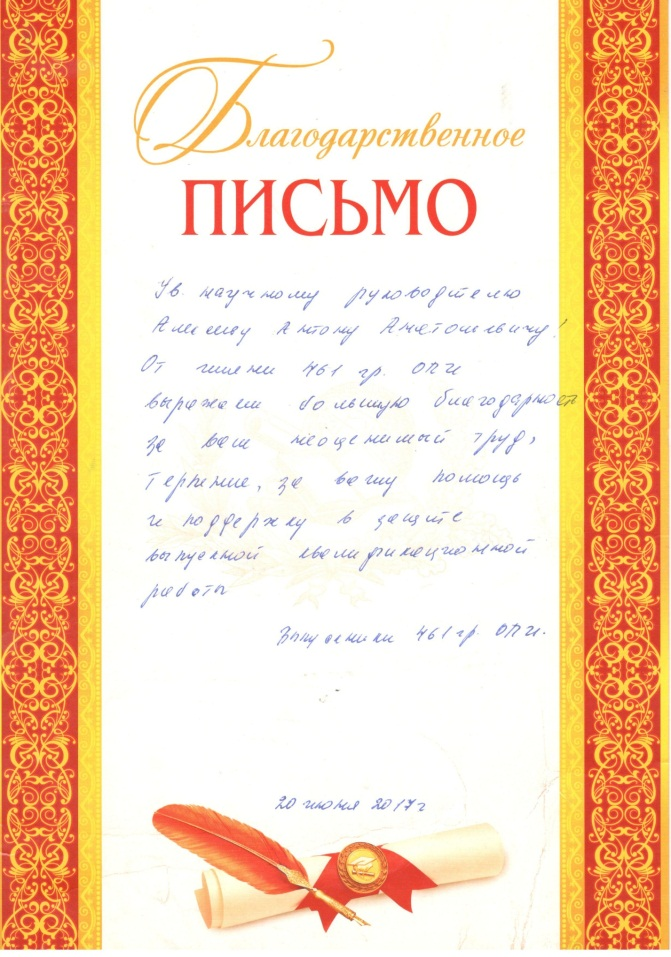 Благодарственное
ПИСЬМО
Ув. научному руководителю
Антону Анатольевичу!
От имени 461 гр. ОПИ
выражаем большую благодарность
за ваш неоценимый труд,
терпение, за вашу помощь
и поддержку в защите
выпускной квалификационной
работы
Выпускники 461 гр. ОПИ.
20 июня 2017 г